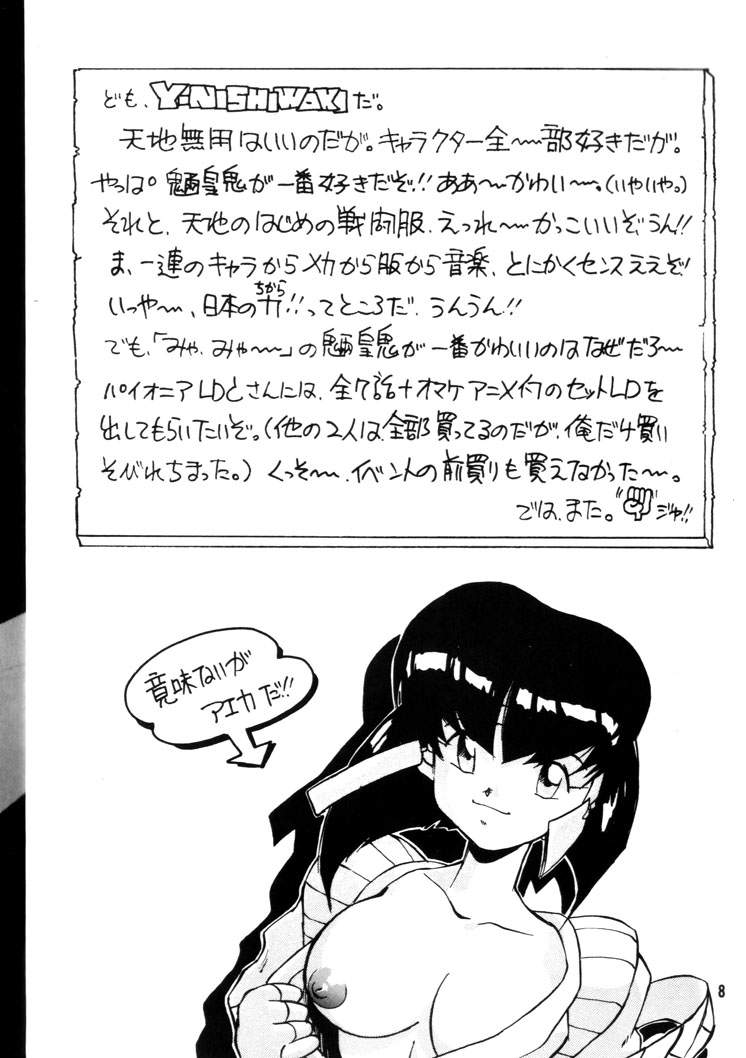 ども、Y・NISHIWAKIだ。
天地無用はいいのだが。キャラクター全〜部好きだが。
やっぱ。魎皇鬼が一番好きだぞ!!ああ〜かわい〜。(いやいや。)
それと、天地のはじめの戦闘服、えっれ〜かっこいいぞ、うん!!
ま、一連のキャラからメカから服から音楽、とにかくセンスええぞ
いっや〜、日本の力!!ってところだ、うんうん!!
ちから
でも、「みゃ、みゃ〜」の魎皇鬼が一番かわいいのはなぜだろ〜
パイオニアLDとさんには、全7話+オマケアニメイクのセットLDを
出してもらいたいぞ。(他の2人は全部買ってるのだが、俺だけ買い
そびれちまった。)くっそ〜、イベントの前買りも買えなかった〜。
では、また。"✊"ジャ!!
意味ないが
アエカだ!!
8